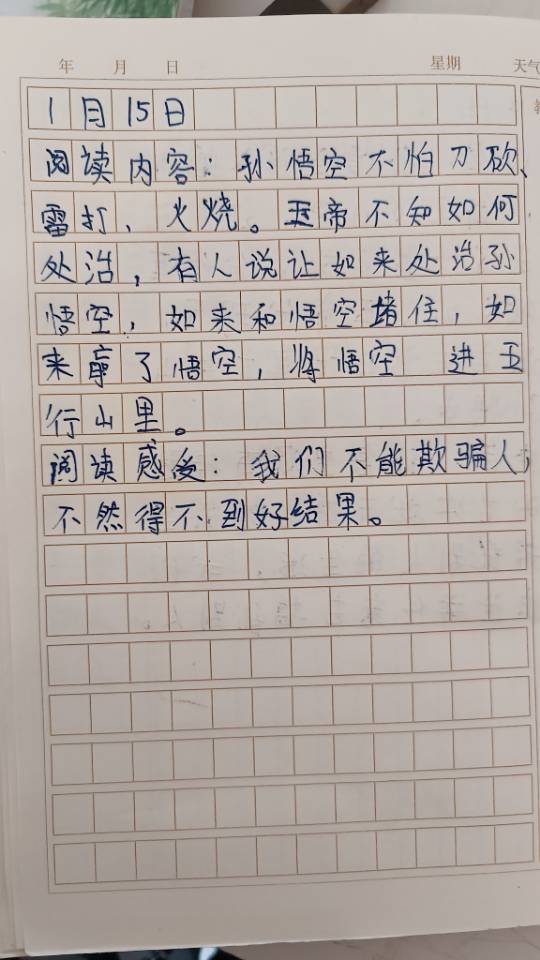 年 月 日 星期 天气
1月15日
阅读内容：孙悟空不怕刀砍、
雷打、火烧。玉帝不知如何
处治，有人说让如来处治孙
悟空，如来和悟空堵住，如
来赢了悟空，将悟空 进玉
行山里。
阅读感受：我们不能欺骗人，
不然得不到好结果。